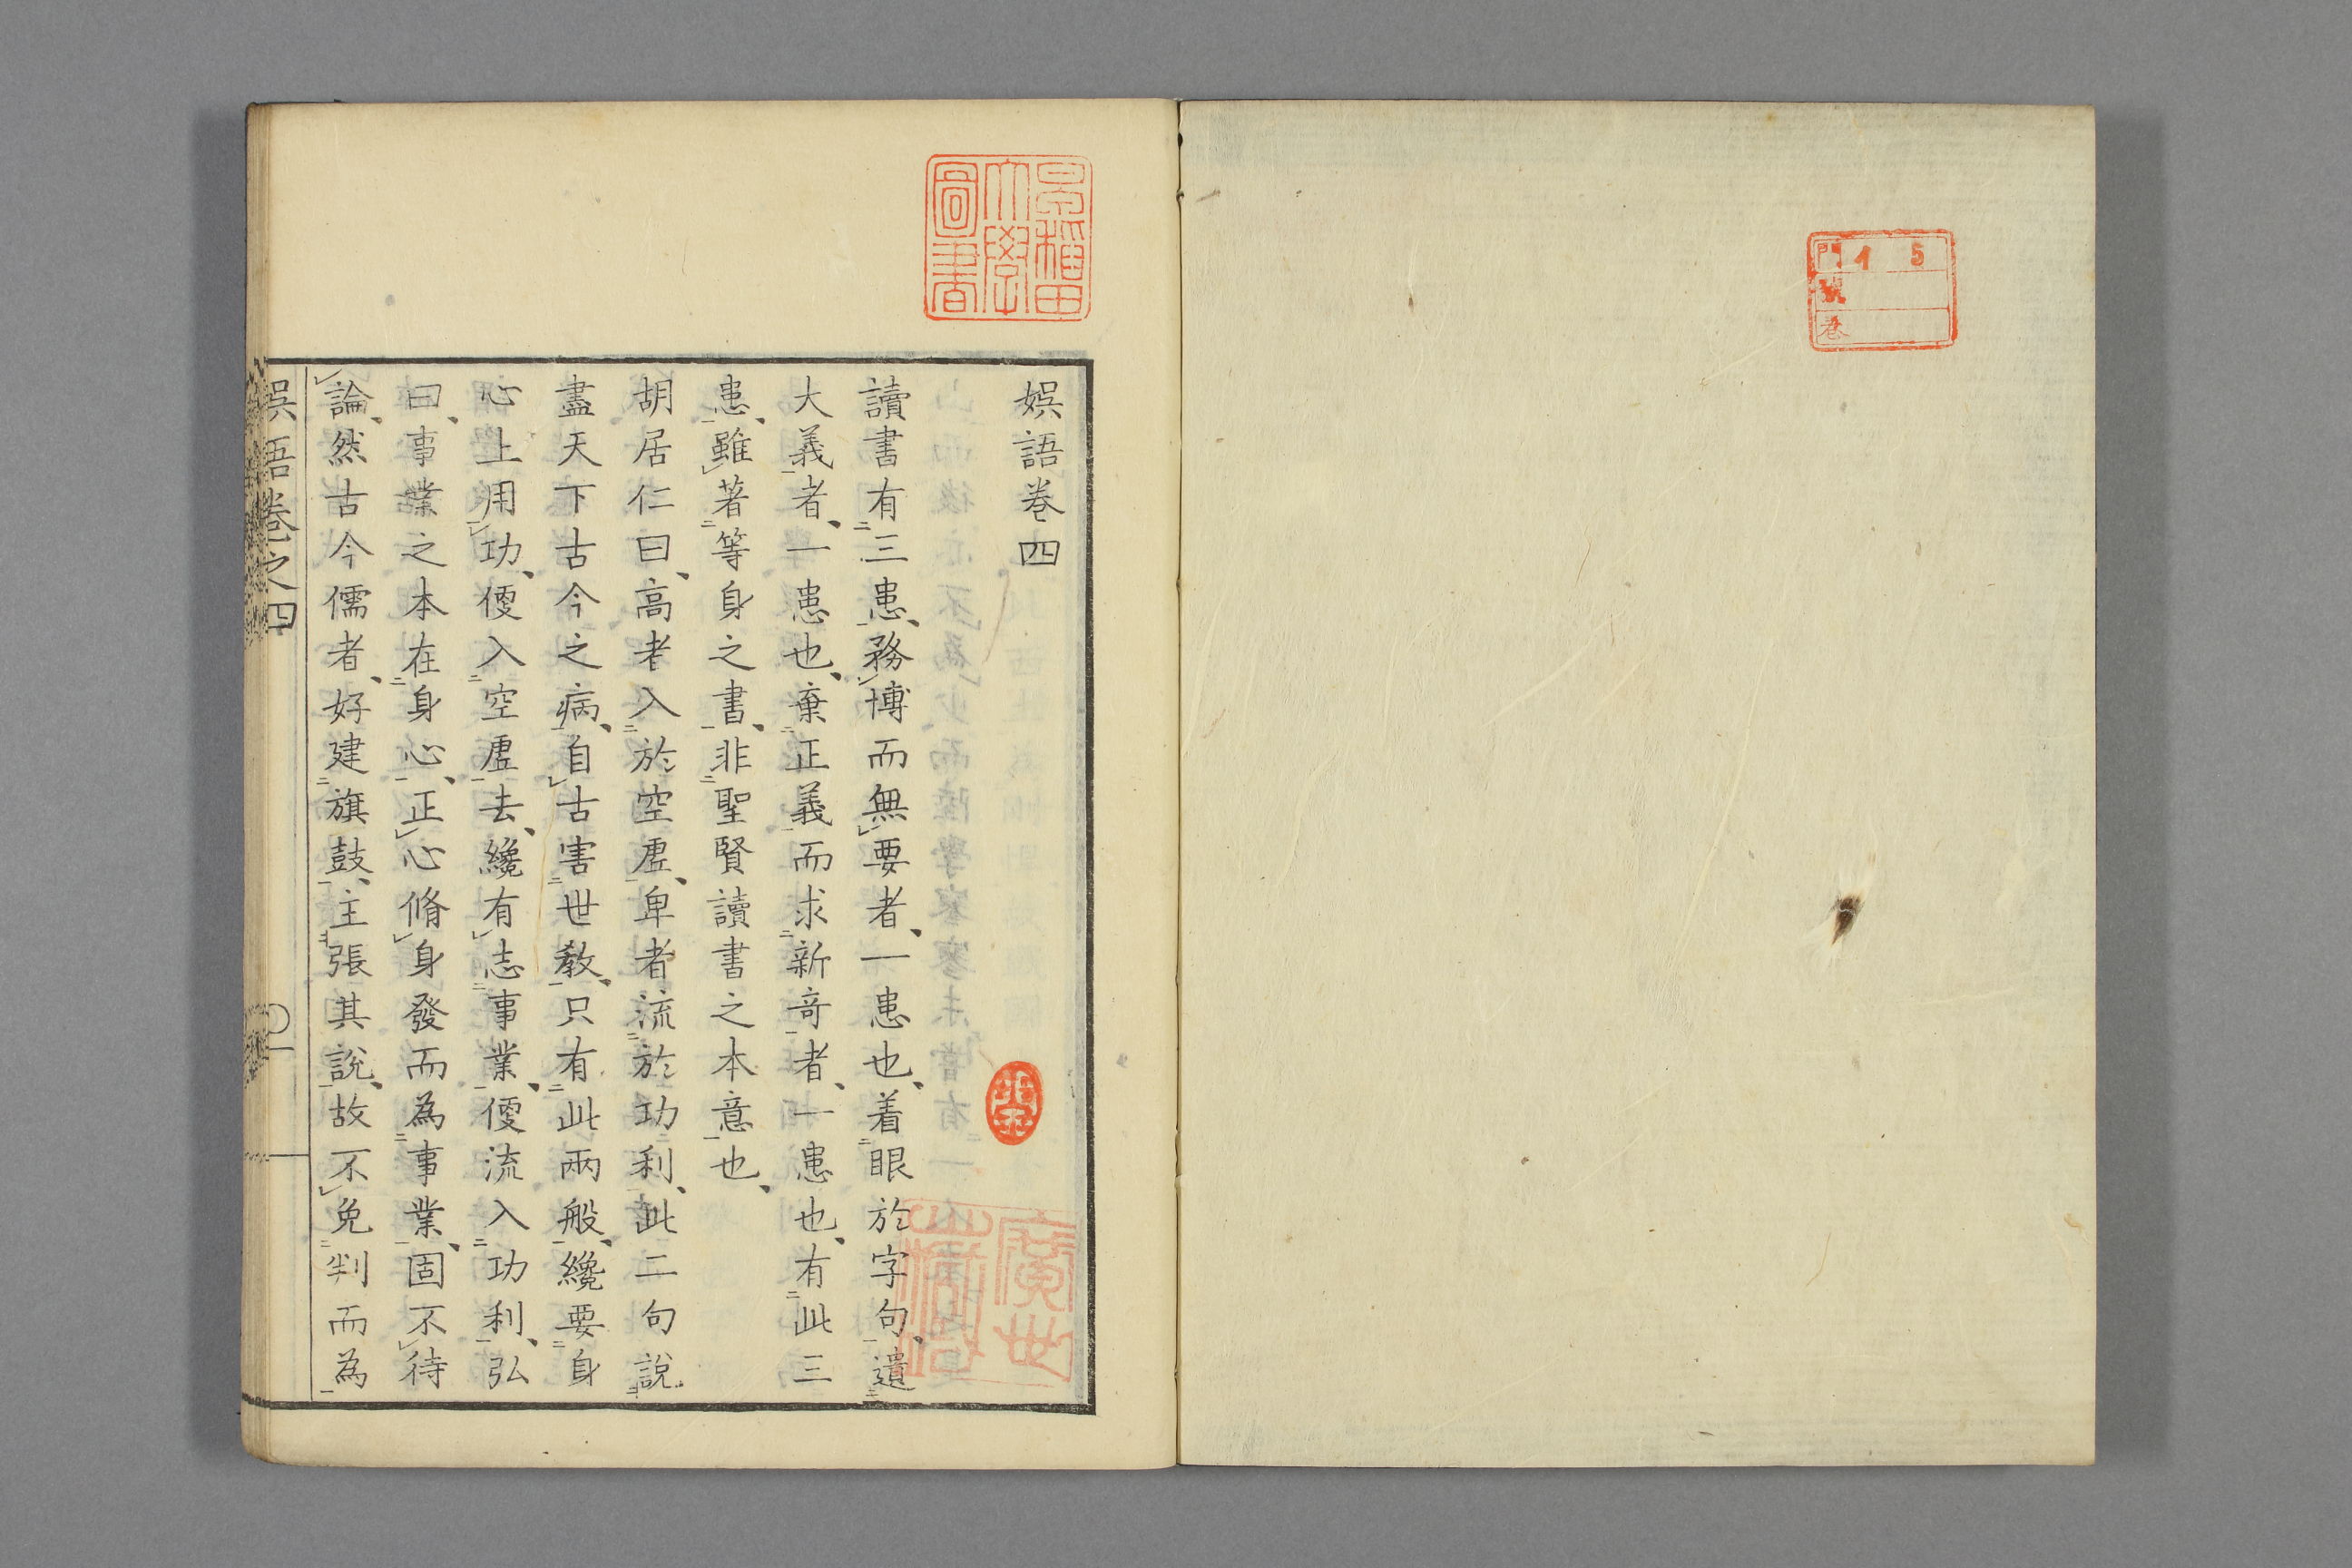 門 15
號
卷
早稲田
大學
圖書
娯語卷四
讀書有三患、務博而無要者、一患也、着眼於字句、遺
大義者、一患也、棄正義而求新奇者、一患也、有此三
患、雖著等身之書、非聖賢讀書之本意也、
胡居仁曰、高者入於空虛、卑者流於功利、此二句說
盡天下古今之病、自古害世教、只有此兩般、纔要身
心上用功、便入空虛去、纔有志事業、便流入功利、弘
曰、事業之本在身心、正心脩身發而為事業、固不待
論、然古今儒者、好建旗鼓、主張其說、故不免判而為
娯語卷之四
一